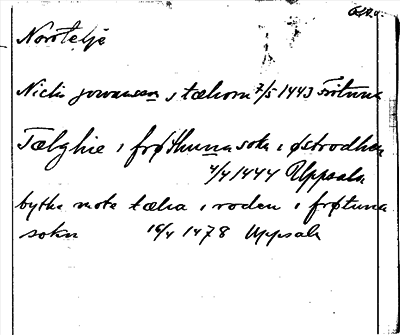 Norrtelje
Niclis jowansson i tælom 7/5 1443 Frötuna
Tælghie i frøthuna sokn i østrodhen
4/4 1444 Uppsala
bytha mote tælia i roden i frøtuna
sokn 16/4 1478 Uppsala